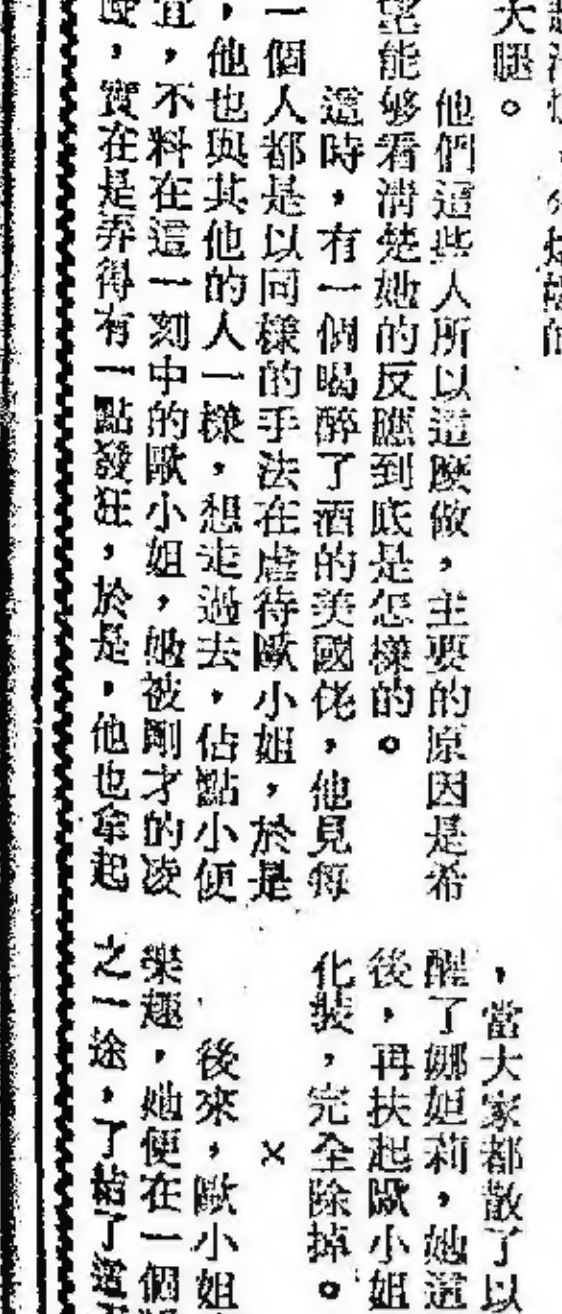 大腿。
他們這些人所以這麼做，主要的原因是希
望能够看清楚她的反應到底是怎樣的。
這時，有一個喝醉了酒的美國佬，他見每
一個人都是以同樣的手法在虐待歐小姐，於是
，他也與其他的人一樣，想走過去，佔點小便
宜，不料在這一刻中的歐小姐，她被剛才的凌
度，實在是弄得有一點發狂，於是，他也拿起
，當大家都散了以
醒了娜妲莉，她這
後，再扶起歐小姐
化裝，完全除掉。
×
後來，歐小姐
樂趣，她便在一個
之一途，了結了這